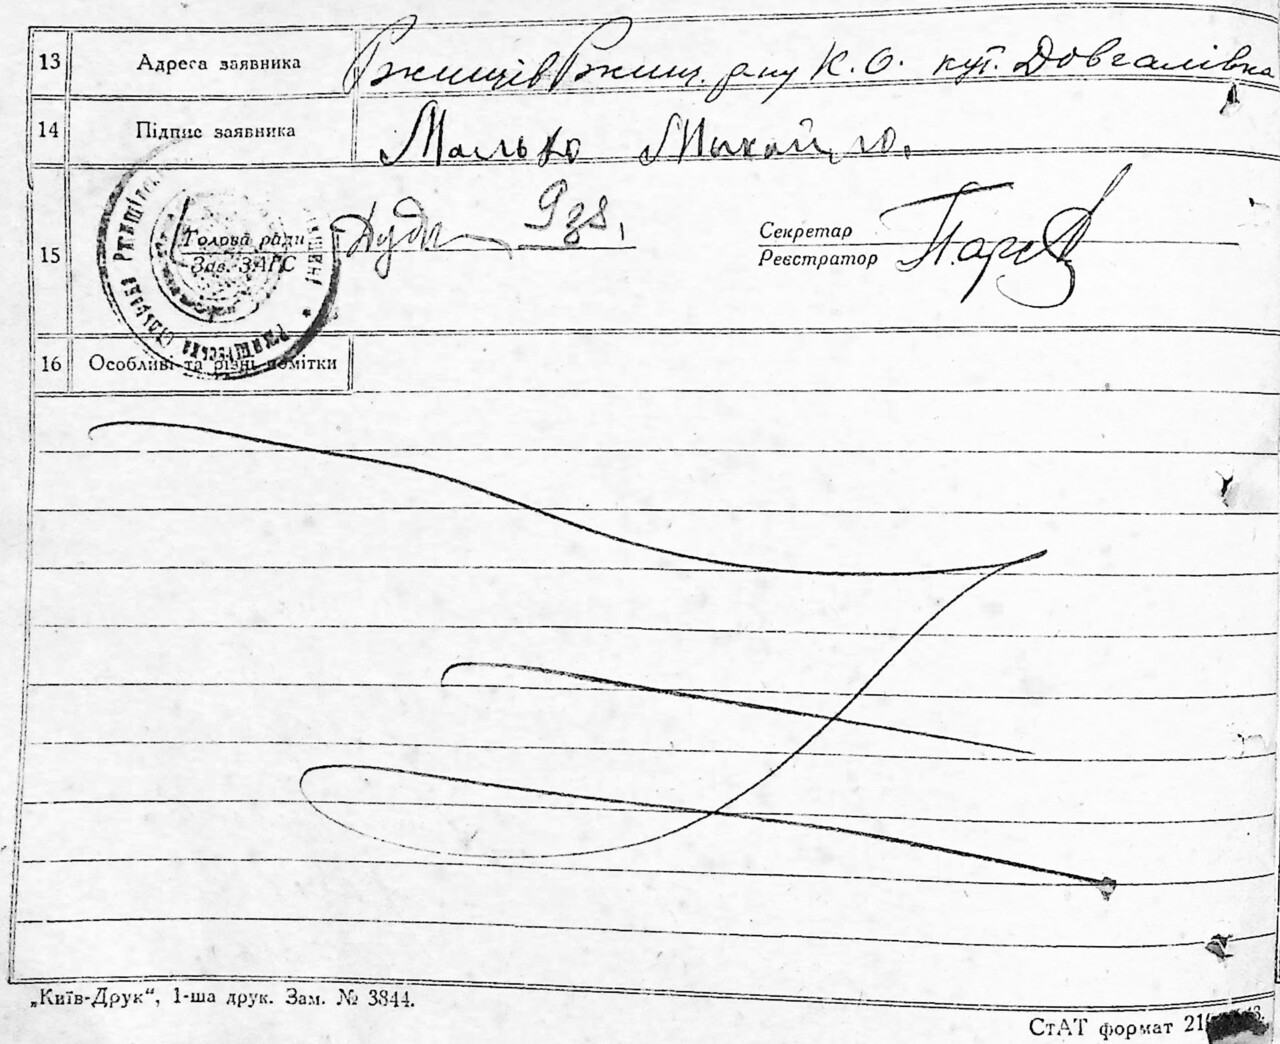 13 Адреса заявника Ржищів Ржищ. р-ну К. О. кут. Довгалівка
14 Підпис заявника Малько Михайло.
15 Голова ради Зав. ЗАГС
Секретар Реєстратор
16 Особливі та різні помітки
„Київ-Друк“, 1-ша друк. Зам. № 3844.
СтАТ формат 21